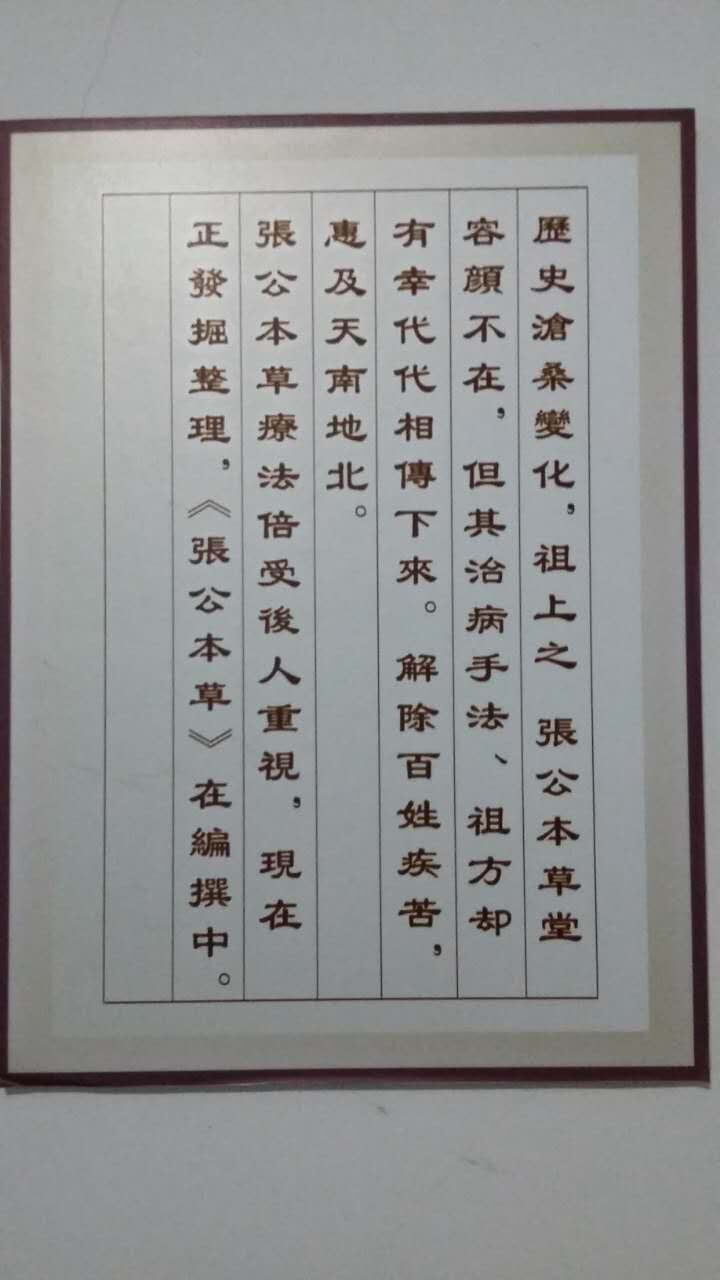 歷史滄桑變化，祖上之 張公本草堂
容顔不在，但其治病手法、祖方却
有幸代代相傳下來。解除百姓疾苦，
惠及天南地北。
張公本草療法倍受後人重視，現在
正發掘整理，《張公本草》在編撰中。